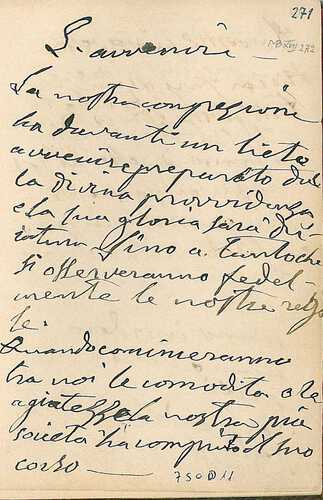 271
L'avvenire
La nostra congregazione
ha davanti un lieto
avvenire preparato dal
la divina provvidenza
e la sua gloria sarà du
ratura fino a tanto che
si osserveranno fedel
mente le nostre rego
le.
Quando cominceranno
tra noi le comodità o le
agiatezze la nostra pia
società ha compiuto il suo
corso
750D11